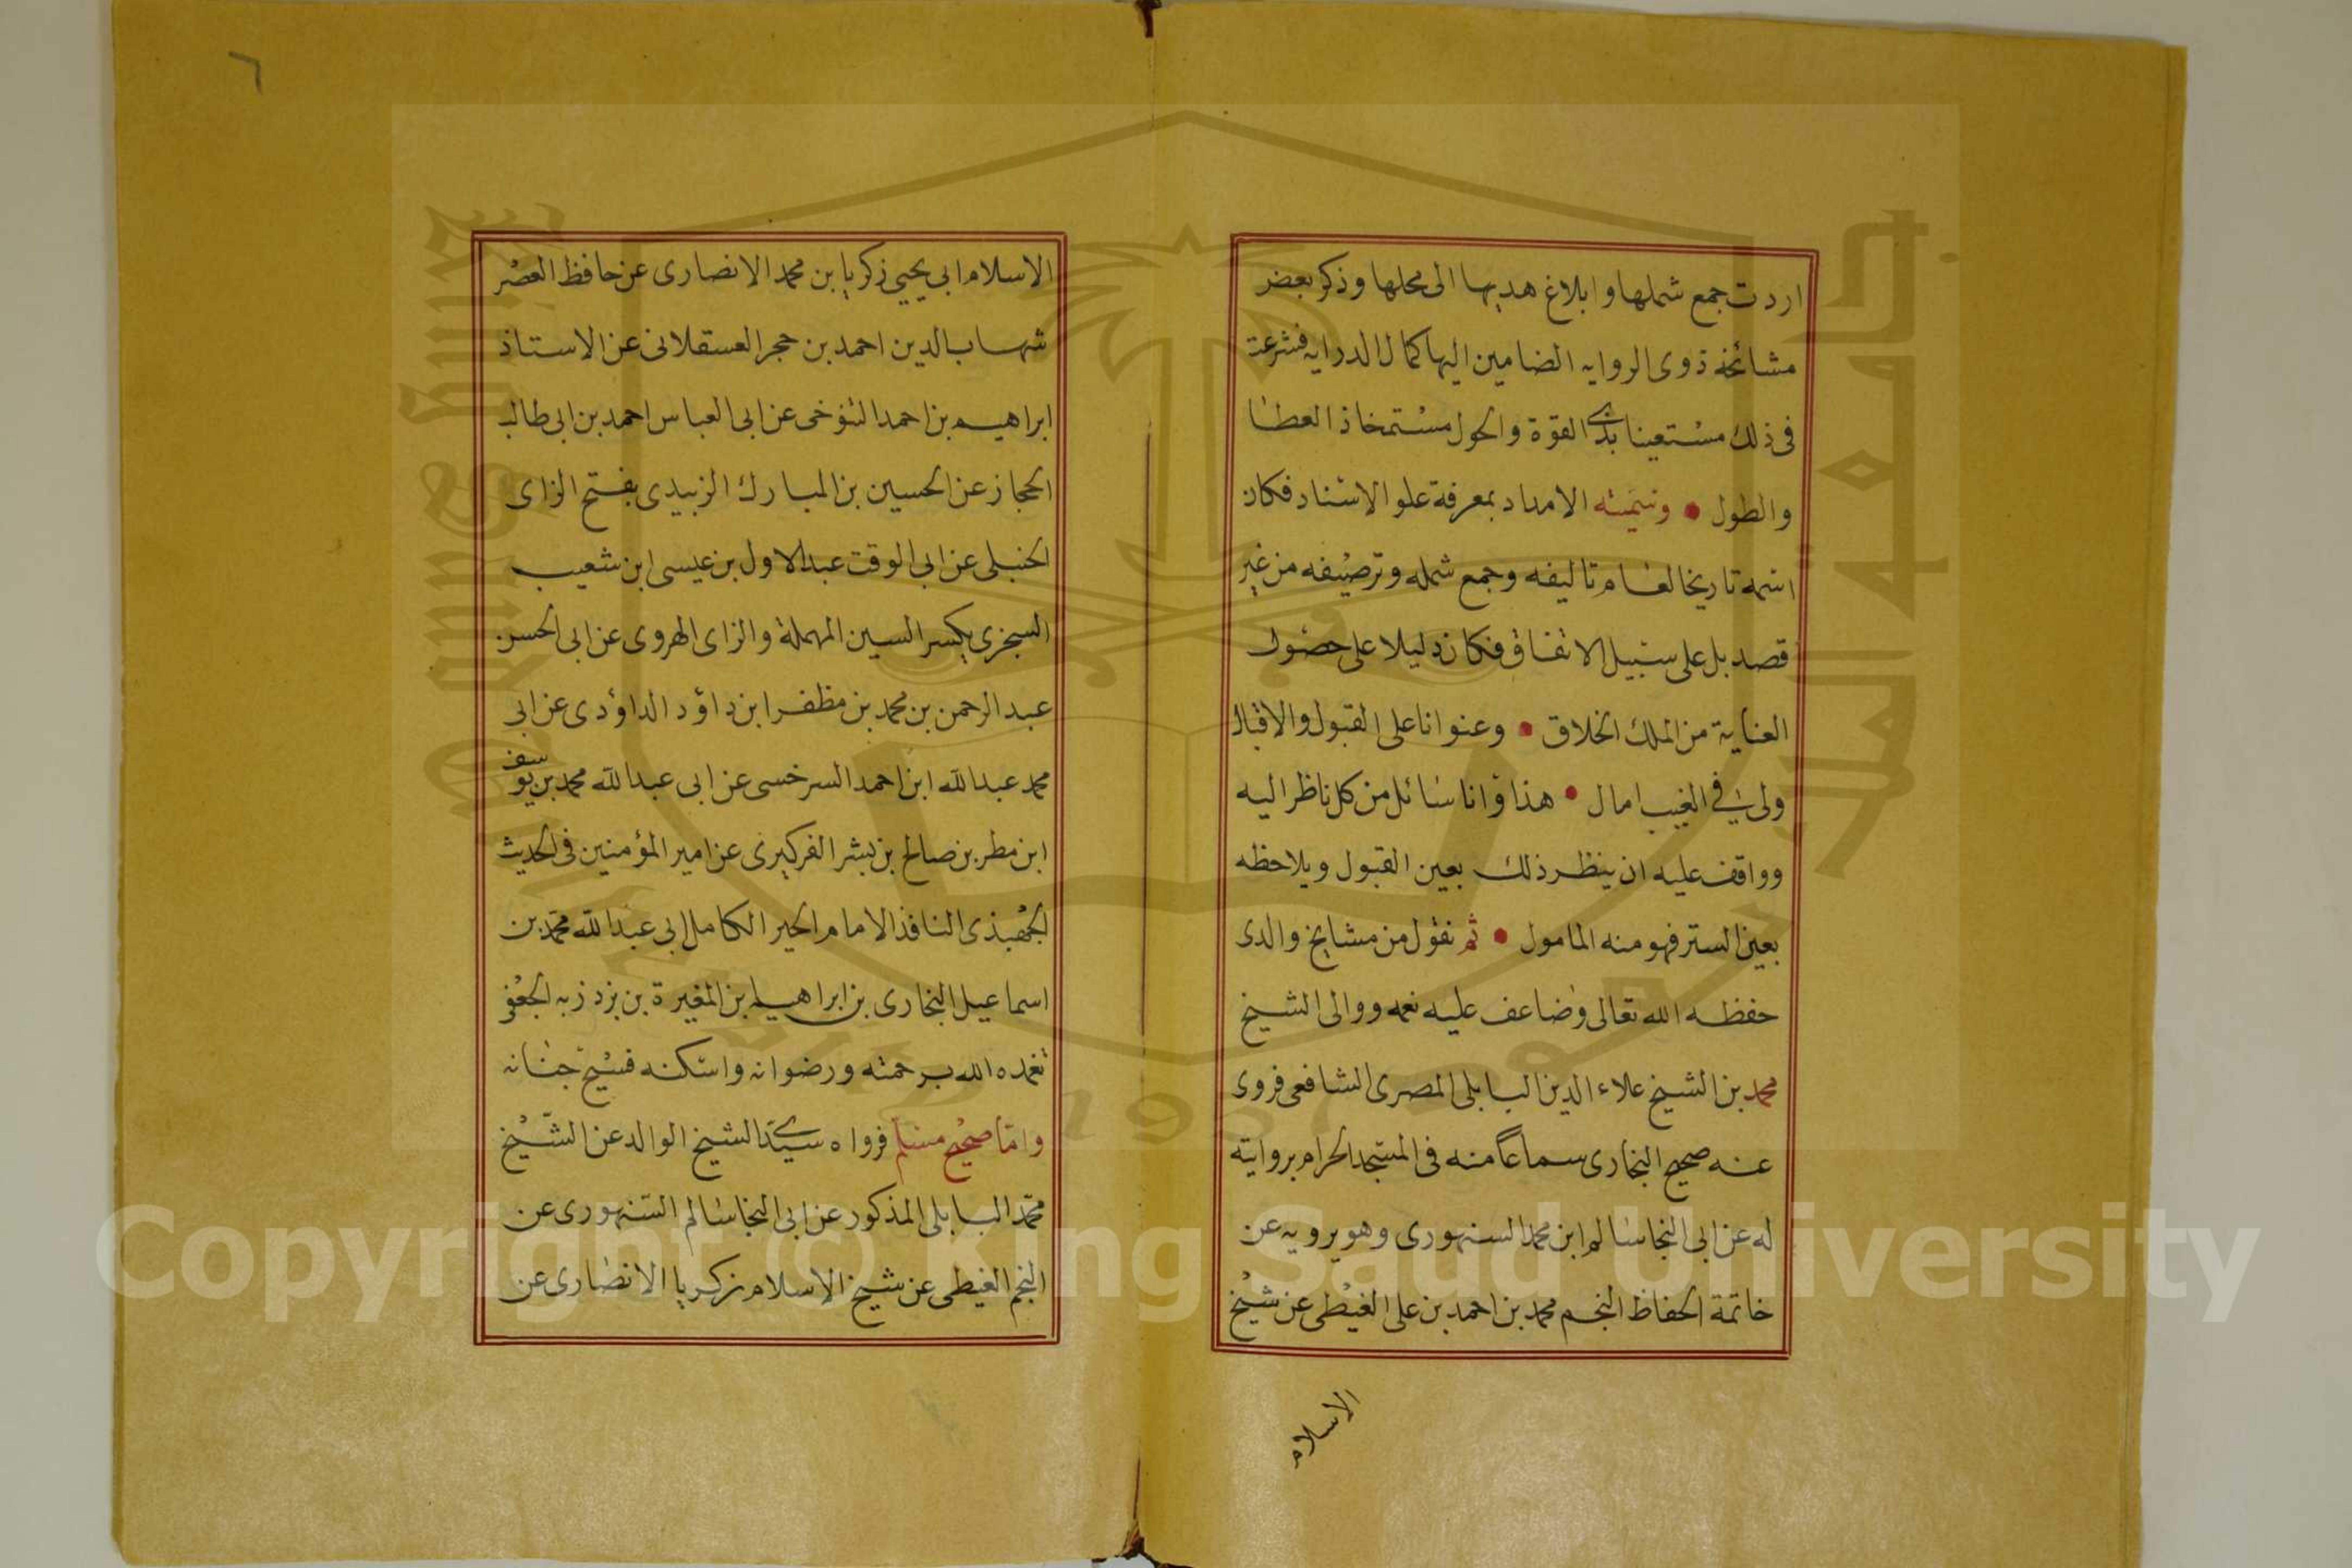 اردت جمع شملها وابلاغ هديها الى محلها وذكر بعض
مشائخه ذوى الروايه الضامين اليها كمال الدرايه فشرعت
فى ذلك مستعينا بذى القوة والحول مستمنحا ذا العطا
والطول • وسميته الامداد بمعرفة علو الاسناد فكان
اسمه تاريخا لعام تاليفه وجمع شمله وترصيفه من غير
قصد بل على سبيل الاتفاق فكان دليلا على حصول
العناية من الملك الخلاق • وعنوانا على القبول والاقبال
ولى فى الغيب امال • هذا وانا سائل من كل ناظر اليه
وواقف عليه ان ينظر ذلك بعين القبول ويلاحظه
بعين الستر فهو منه المامول • ثم نقول من مشايخ والدى
حفظه الله تعالى وضاعف عليه نعمه ووالى الشيخ
محمد بن الشيخ علاء الدين البابلى المصرى الشافعى فروى
عنه صحيح البخارى سماعا منه فى المسجد الحرام بروايته
له عن ابى النجا سالم ابن محمد السنهورى وهو يرويه عن
خاتمة الحفاظ النجم محمد بن احمد بن على الغيطى عن شيخ
الاسلام
٦
الاسلام ابى يحيى زكريا بن محمد الانصارى عن حافظ العصر
شهاب الدين احمد بن حجر العسقلانى عن الاستاذ
ابراهيم بن احمد التنوخى عن ابى العباس احمد بن ابى طالب
الحجاز عن الحسين بن المبارك الزبيدى بفتح الزاى
الحنبلى عن ابى الوقت عبد الاول بن عيسى ابن شعيب
السجزى بكسر السين المهملة والزاى الهروى عن ابى الحسن
عبد الرحمن بن محمد بن مظفر ابن داؤد الداؤدى عن ابى
محمد عبد الله ابن احمد السرخسى عن ابى عبد الله محمد بن يوسف
ابن مطر بن صالح بن بشر الفربرى عن امير المؤمنين فى الحديث
الجهبذى الناقد الامام الحبر الكامل ابى عبد الله محمد بن
اسماعيل البخارى بن ابراهيم بن المغيرة بن بزدزبه الجعفى
تغمده الله برحمته ورضوانه واسكنه فسيح جنانه
واما صحيح مسلم فرواه سيدى الشيخ الوالد عن الشيخ
محمد البابلى المذكور عن ابى النجا سالم السنهورى عن
النجم الغيطى عن شيخ الاسلام زكريا الانصارى عن
Copyright © King Saud University